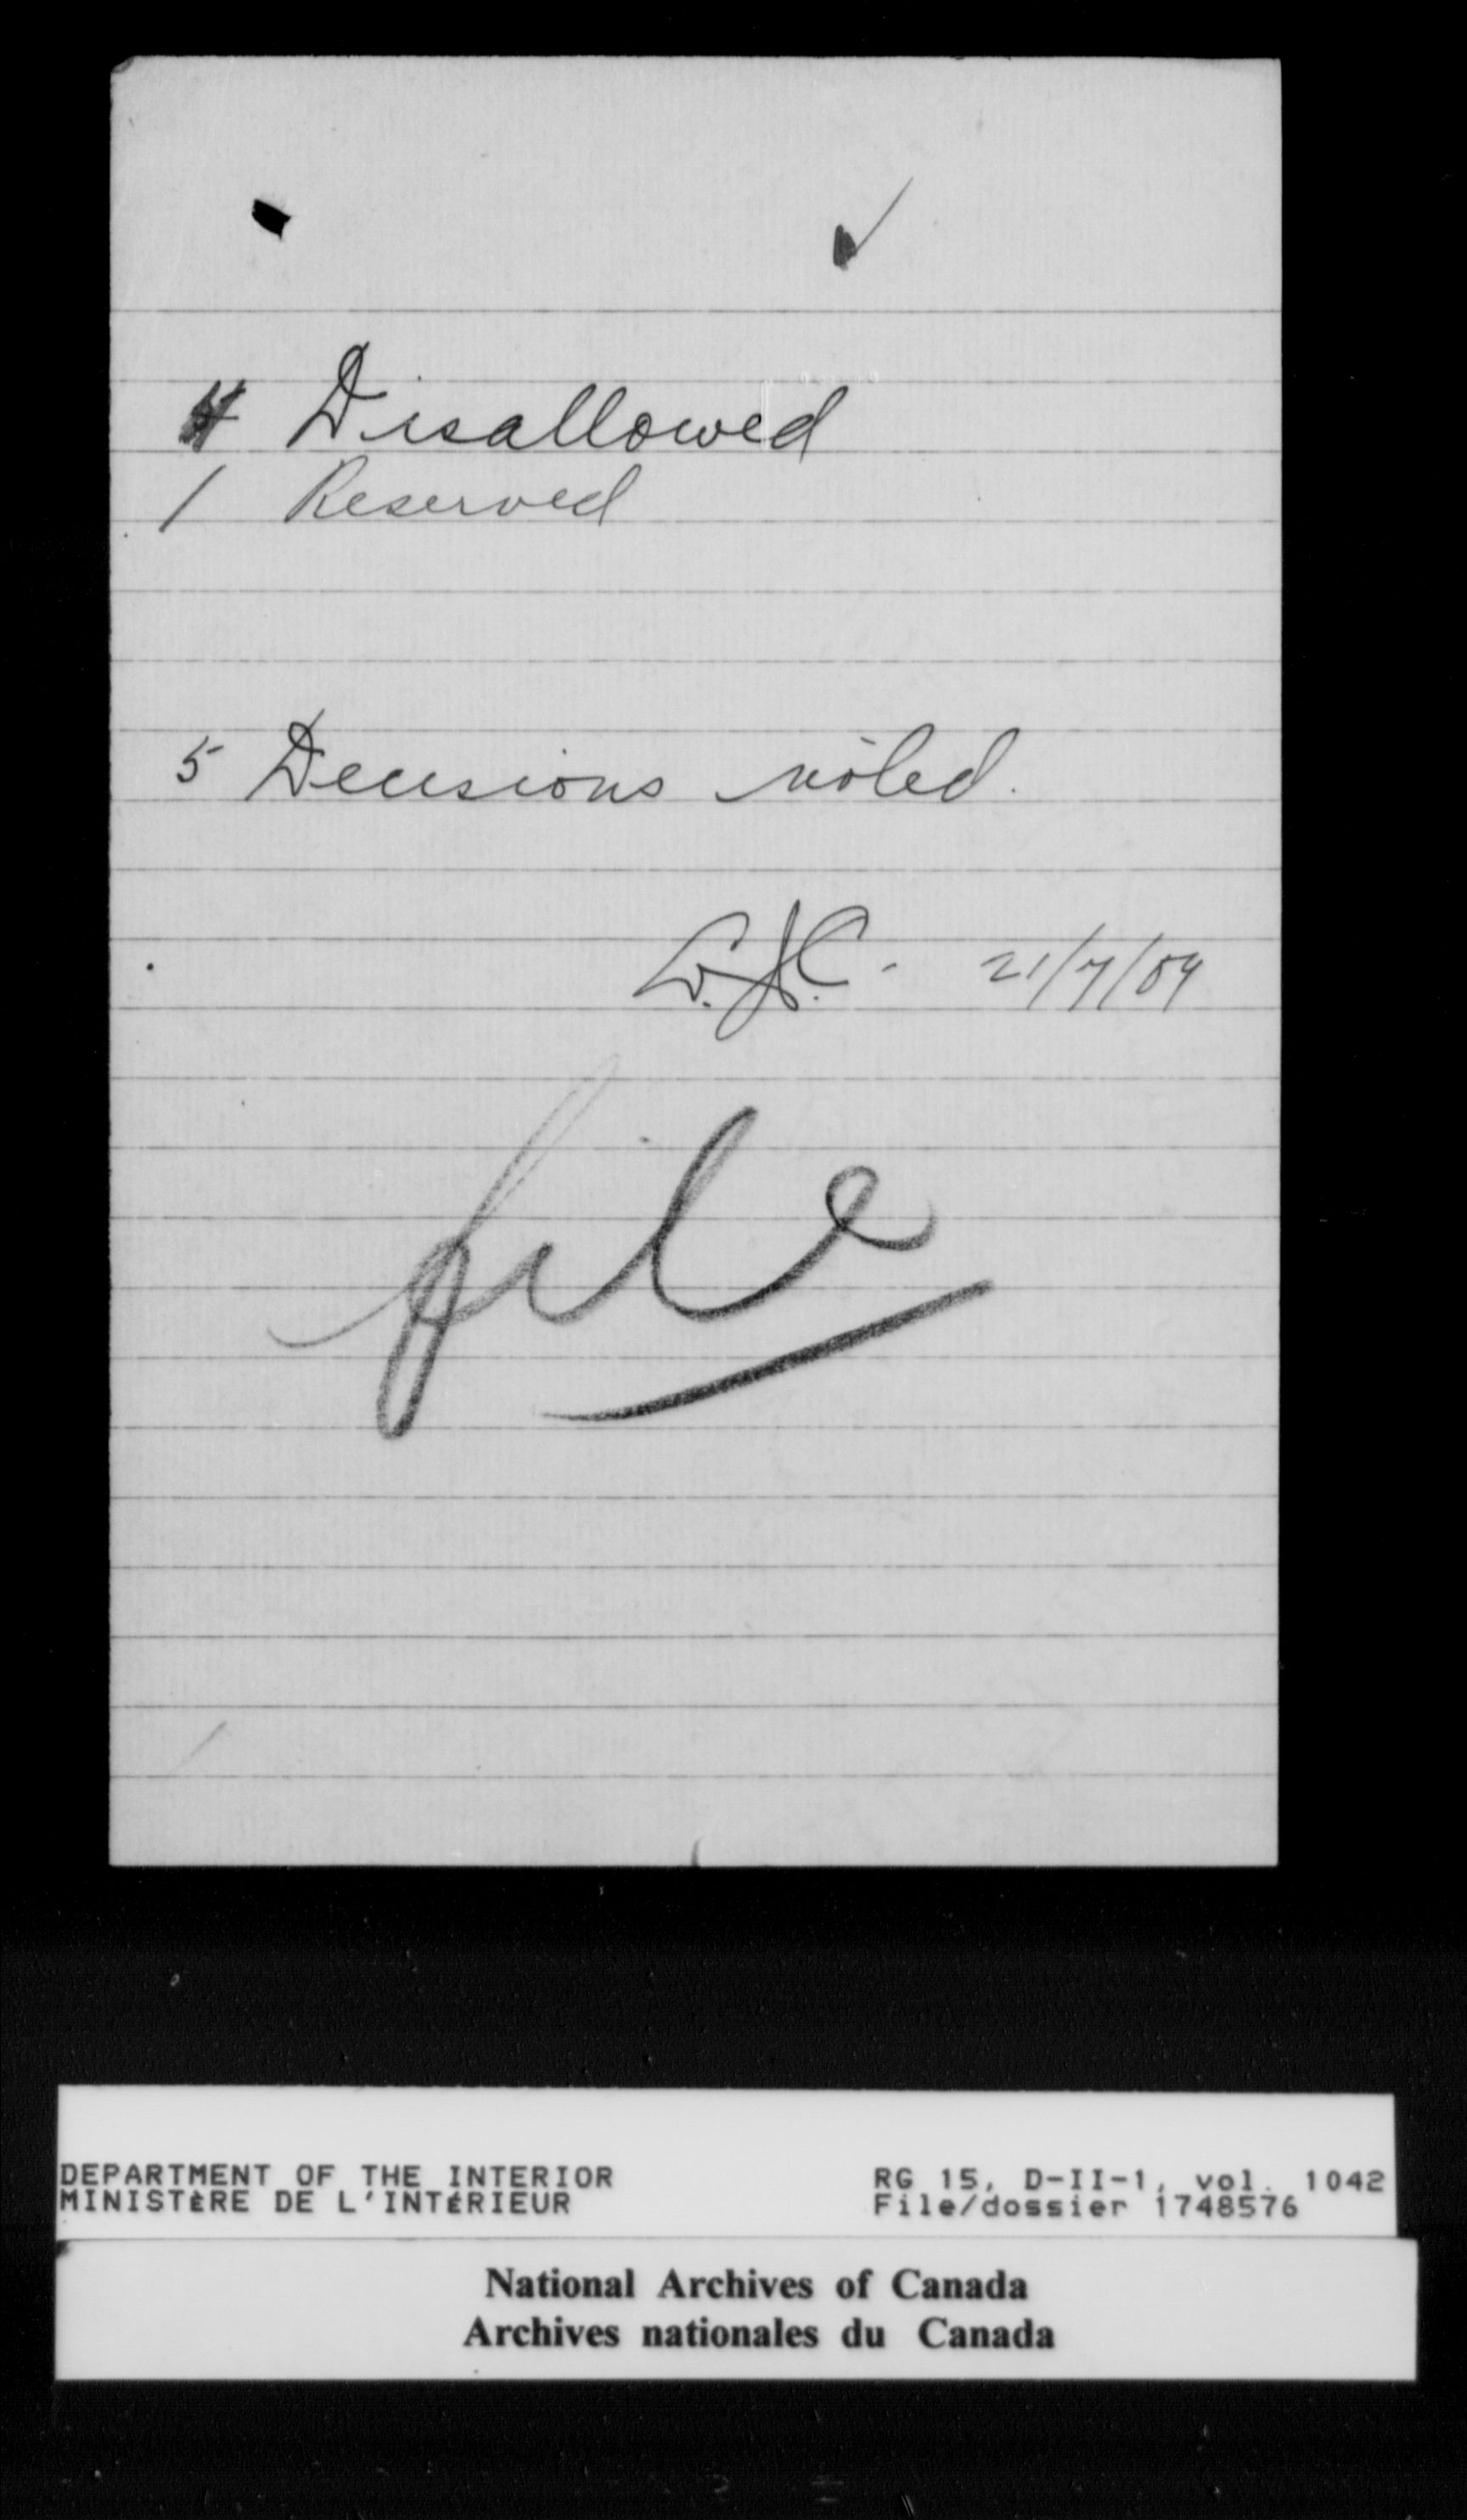 4 Disallowed
1 Reserved
5 Decisions noted.
21/7/09
file
DEPARTMENT OF THE INTERIOR
MINISTÈRE DE L'INTÉRIEUR
RG 15, D-II-1, vol. 1042
File/dossier 1748576
National Archives of Canada
Archives nationales du Canada